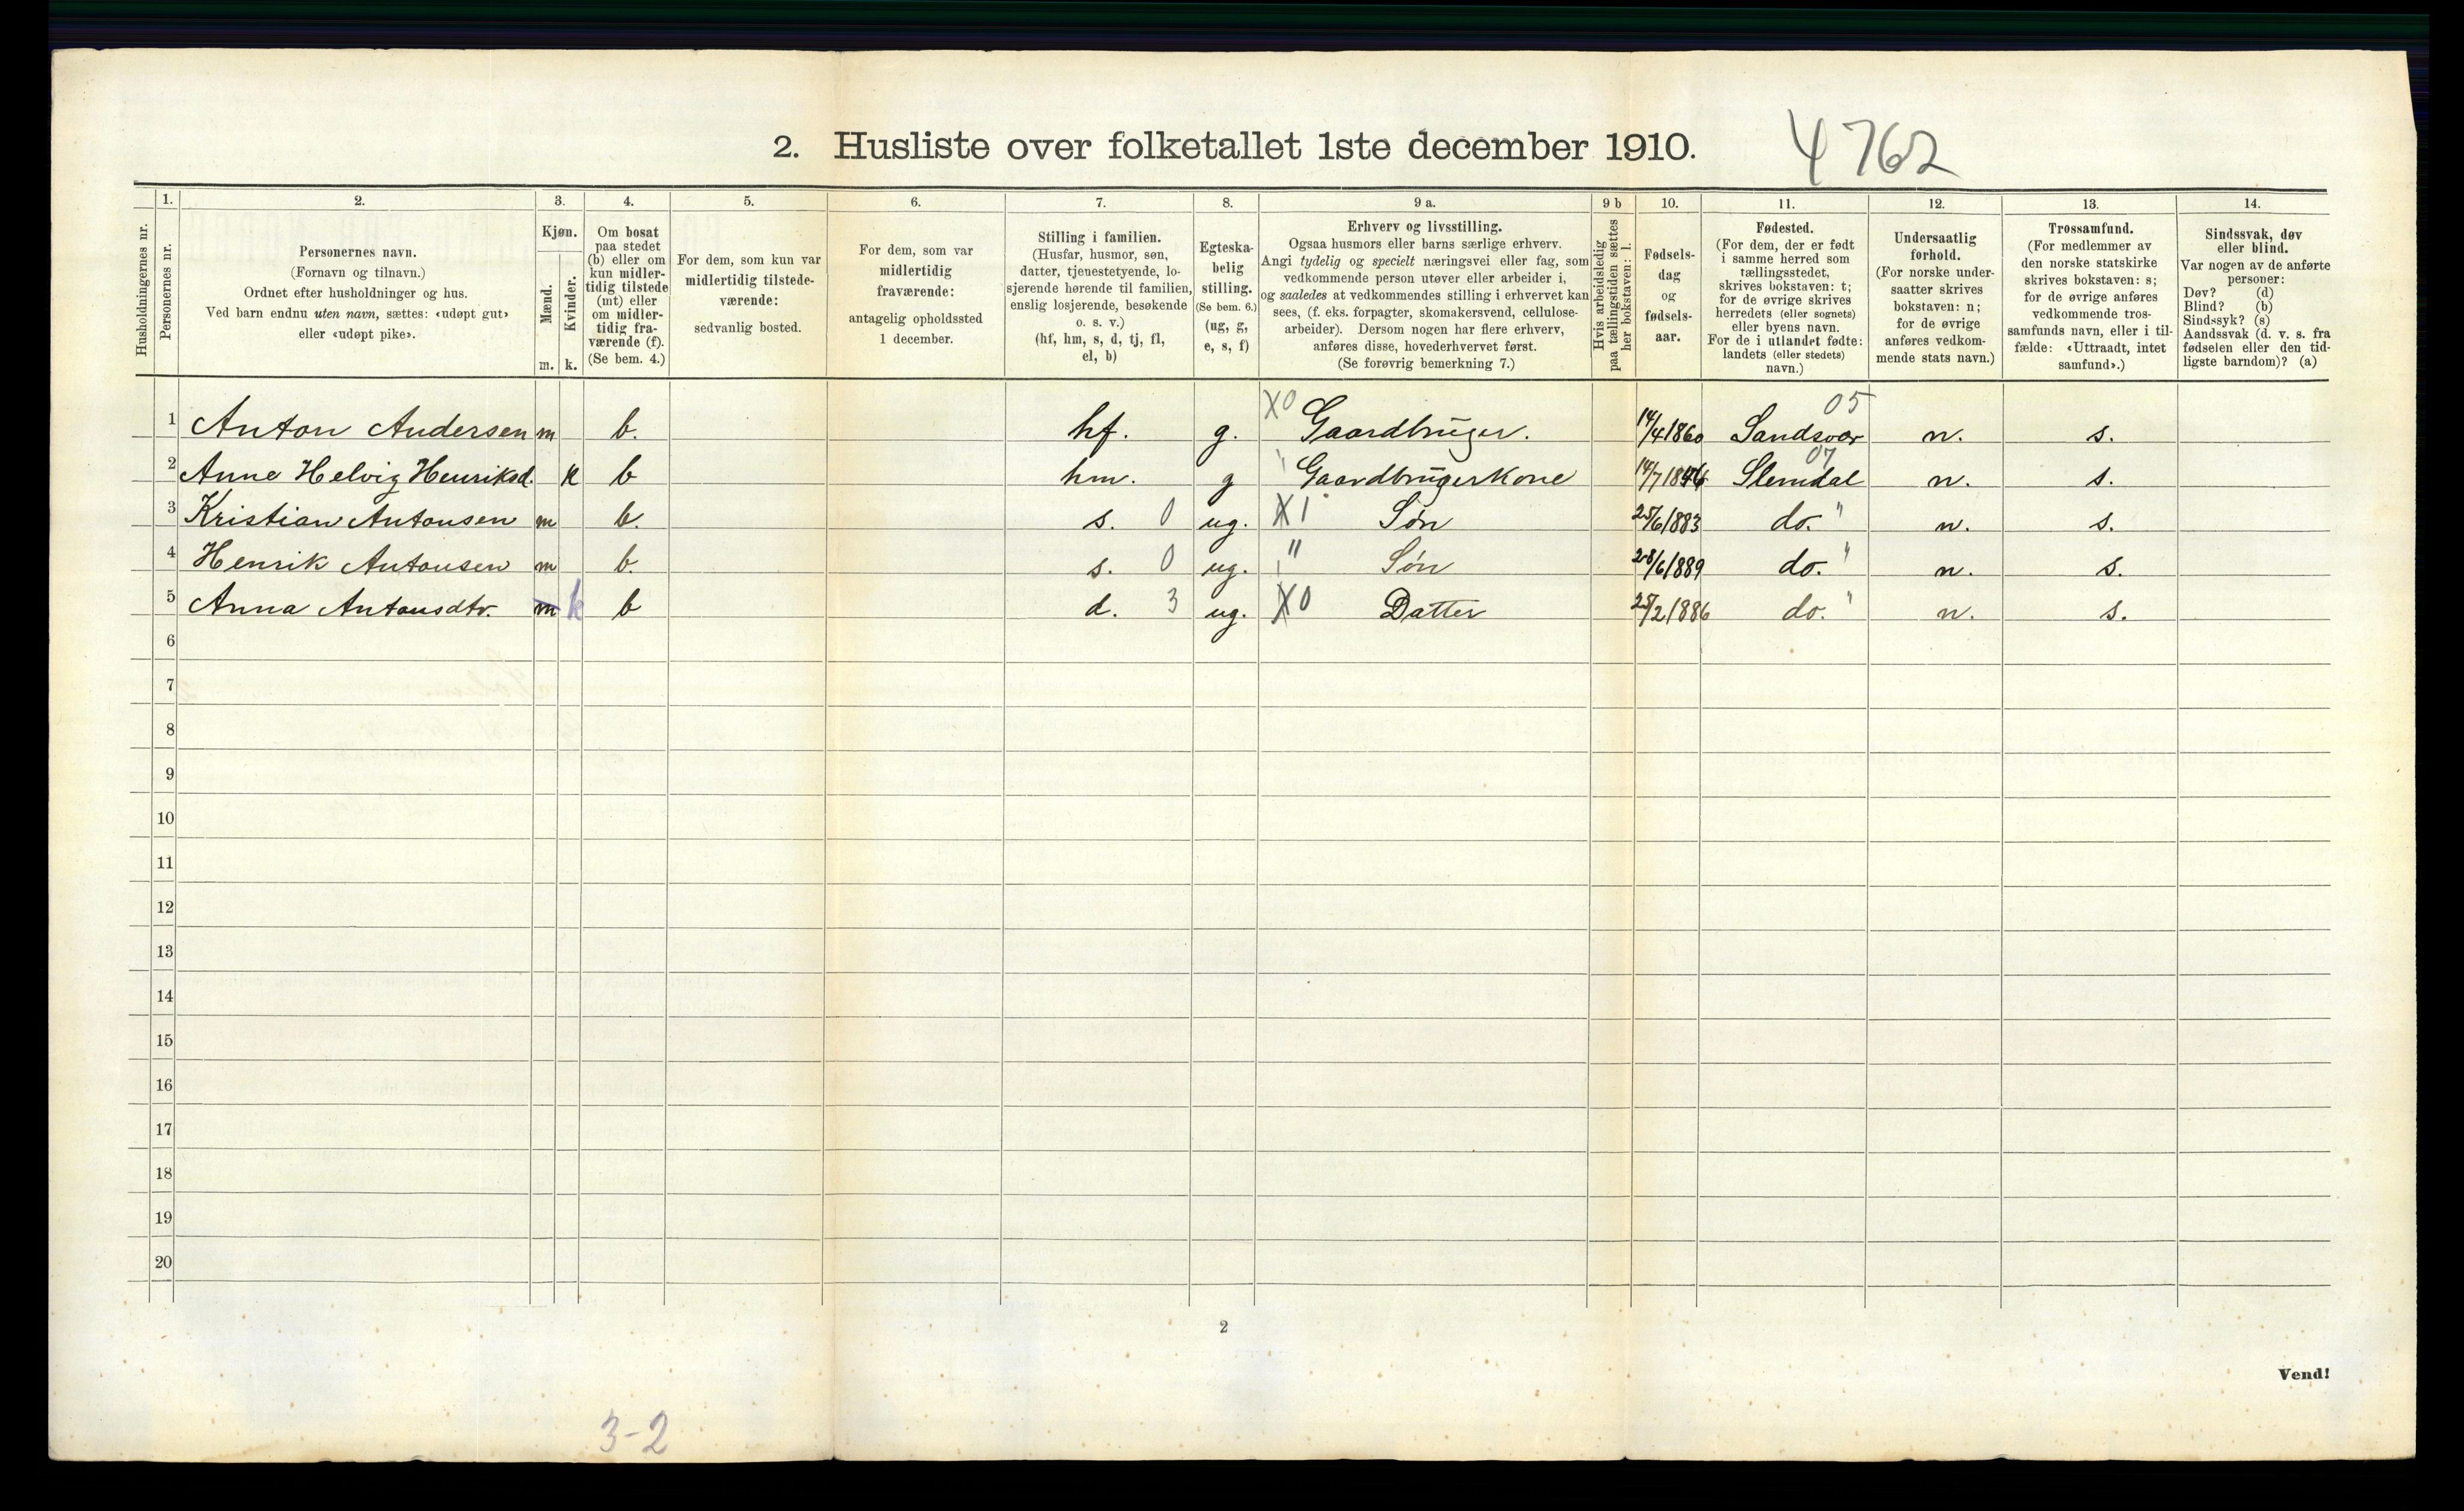 2. Husliste over folketallet 1ste december 1910.
4762
Husholdningernes nr.
1.
Personernes nr.
2.
Personernes navn.
(Fornavn og tilnavn.)
Ordnet efter husholdninger og hus.
Ved barn endnu uten navn, sættes: «udøpt gut»
eller «udøpt pike».
3.
Kjøn.
Mænd.
Kvinder.
m. k.
4.
Om bosat
paa stedet
(b) eller om
kun midler-
tidig tilstede
(mt) eller
om midler-
tidig fra-
værende (f).
(Se bem. 4.)
5.
For dem, som kun var
midlertidig tilstede-
værende:
sedvanlig bosted.
6.
For dem, som var
midlertidig
fraværende:
antagelig opholdssted
1 december.
7.
Stilling i familien.
(Husfar, husmor, søn,
datter, tjenestetyende, lo-
sjerende hørende til familien,
enslig losjerende, besøkende
o. s. v.)
(hf, hm, s, d, tj, fl,
el, b)
8.
Egteska-
belig
stilling.
(Se bem. 6.)
(ug, g,
e, s, f)
9 a.
Erhverv og livsstilling.
Ogsaa husmors eller barns særlige erhverv.
Angi tydelig og specielt næringsvei eller fag, som
vedkommende person utøver eller arbeider i,
og saaledes at vedkommendes stilling i erhvervet kan
sees, (f. eks. forpagter, skomakersvend, cellulose-
arbeider). Dersom nogen har flere erhverv,
anføres disse, hovederhvervet først.
(Se forøvrig bemerkning 7.)
9 b
Hvis arbeidsledig
paa tællingstiden sættes
her bokstaven: l.
10.
Fødsels-
dag
og
fødsels-
aar.
11.
Fødested.
(For dem, der er født
i samme herred som
tællingsstedet,
skrives bokstaven: t;
for de øvrige skrives
herredets (eller sognets)
eller byens navn.
For de i utlandet fødte:
landets (eller stedets)
navn.)
12.
Undersaatlig
forhold.
(For norske under-
saatter skrives
bokstaven: n;
for de øvrige
anføres vedkom-
mende stats navn.)
13.
Trossamfund.
(For medlemmer av
den norske statskirke
skrives bokstaven: s;
for de øvrige anføres
vedkommende tros-
samfunds navn, eller i til-
fælde: «Uttraadt, intet
samfund».)
14.
Sindssvak, døv
eller blind.
Var nogen av de anførte
personer:
Døv? (d)
Blind? (b)
Sindssyk? (s)
Aandssvak (d. v. s. fra
fødselen eller den tid-
ligste barndom)? (a)
1 Anton Andersen m b. hf. g. X0 Gaardbruger. 14/4 1860 Sandsvær 05 n. s.
2 Anne Helvig Henriksd. k b hm. g " Gaardbrugerkone 14/7 1846 Slemdal 07 n. s.
3 Kristian Antonsen m b. s. 0 ug. X1 Søn 25/6 1883 do. " n. s.
4 Henrik Antonsen m b. s. 0 ug. " Søn 28/6 1889 do. " n. s.
5 Anna Antonsdtr. m k b d. 3 ug. X0 Datter 25/2 1886 do. " n. s.
6
7
8
9
10
11
12
13
14
15
16
17
18
19
20
2
Vend!
3-2